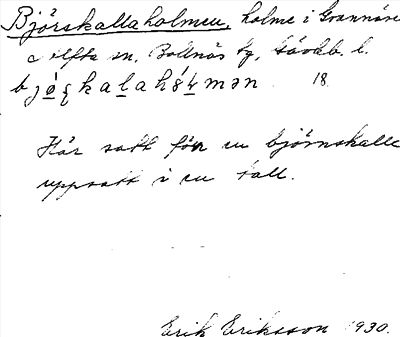 Björskallaholmen, holme i Grannäse
Alfta sn, Bollnäs tg, Gävleb. l.
18.
Här satt förr en björnskalle
uppsatt i en tall.
Erik Eriksson 1930.